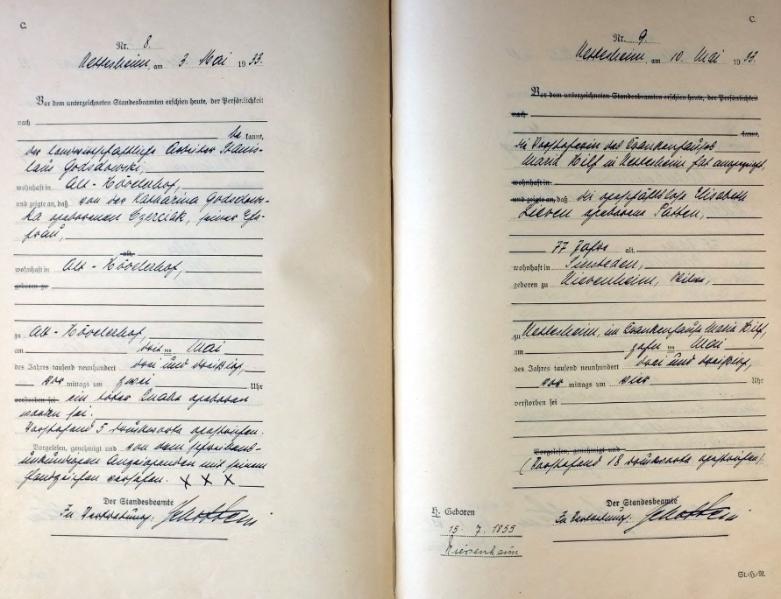 C.
Nr. 8.
Nettesheim, am 3. Mai 1933.
Vor dem unterzeichneten Standesbeamten erschien heute, der Persönlichkeit
nach
be kannt,
der landwirtschaftliche Arbeiter Stanis-
laus
wohnhaft in Alt-Hövelerhof,
und zeigte an, daß von der Katharina
geborenen seiner Ehe-
frau,
alt
wohnhaft in Alt-Hövelerhof,
geboren zu
zu Alt-Hövelerhof,
am drei ten Mai
des Jahres tausend neunhundert drei und dreißig,
vor mittags um zwei Uhr
verstorben sei ein toter Knabe geboren
worden sei.
Vorstehend 5 Druckworte gestrichen.
Vorgelesen, genehmigt und von dem schreibens-
unkundigen Anzeigenden mit seinem
Handzeichen versehen. X X X
Der Standesbeamte
In Vertretung.
C.
Nr. 9.
Nettesheim, am 10. Mai 1933.
Vor dem unterzeichneten Standesbeamten erschien heute, der Persönlichkeit
nach
kannt,
die Vorsteherin des Krankenhauses
Maria Hilf in Nettesheim hat angezeigt,
wohnhaft in
und zeigte an, daß die geschäftslose Elisabeth
geborene
77 Jahre alt
wohnhaft in Sinsteden,
geboren zu Nievenheim,
zu Nettesheim, im Krankenhause Maria Hilf,
am zehn ten Mai
des Jahres tausend neunhundert drei und dreißig,
vor mittags um vier Uhr
verstorben sei
Vorgelesen, genehmigt und
(Vorstehend 18 Druckworte gestrichen)
Der Standesbeamte
In Vertretung.
H. Geboren
15. 7. 1855
Nievenheim
St./H./N.